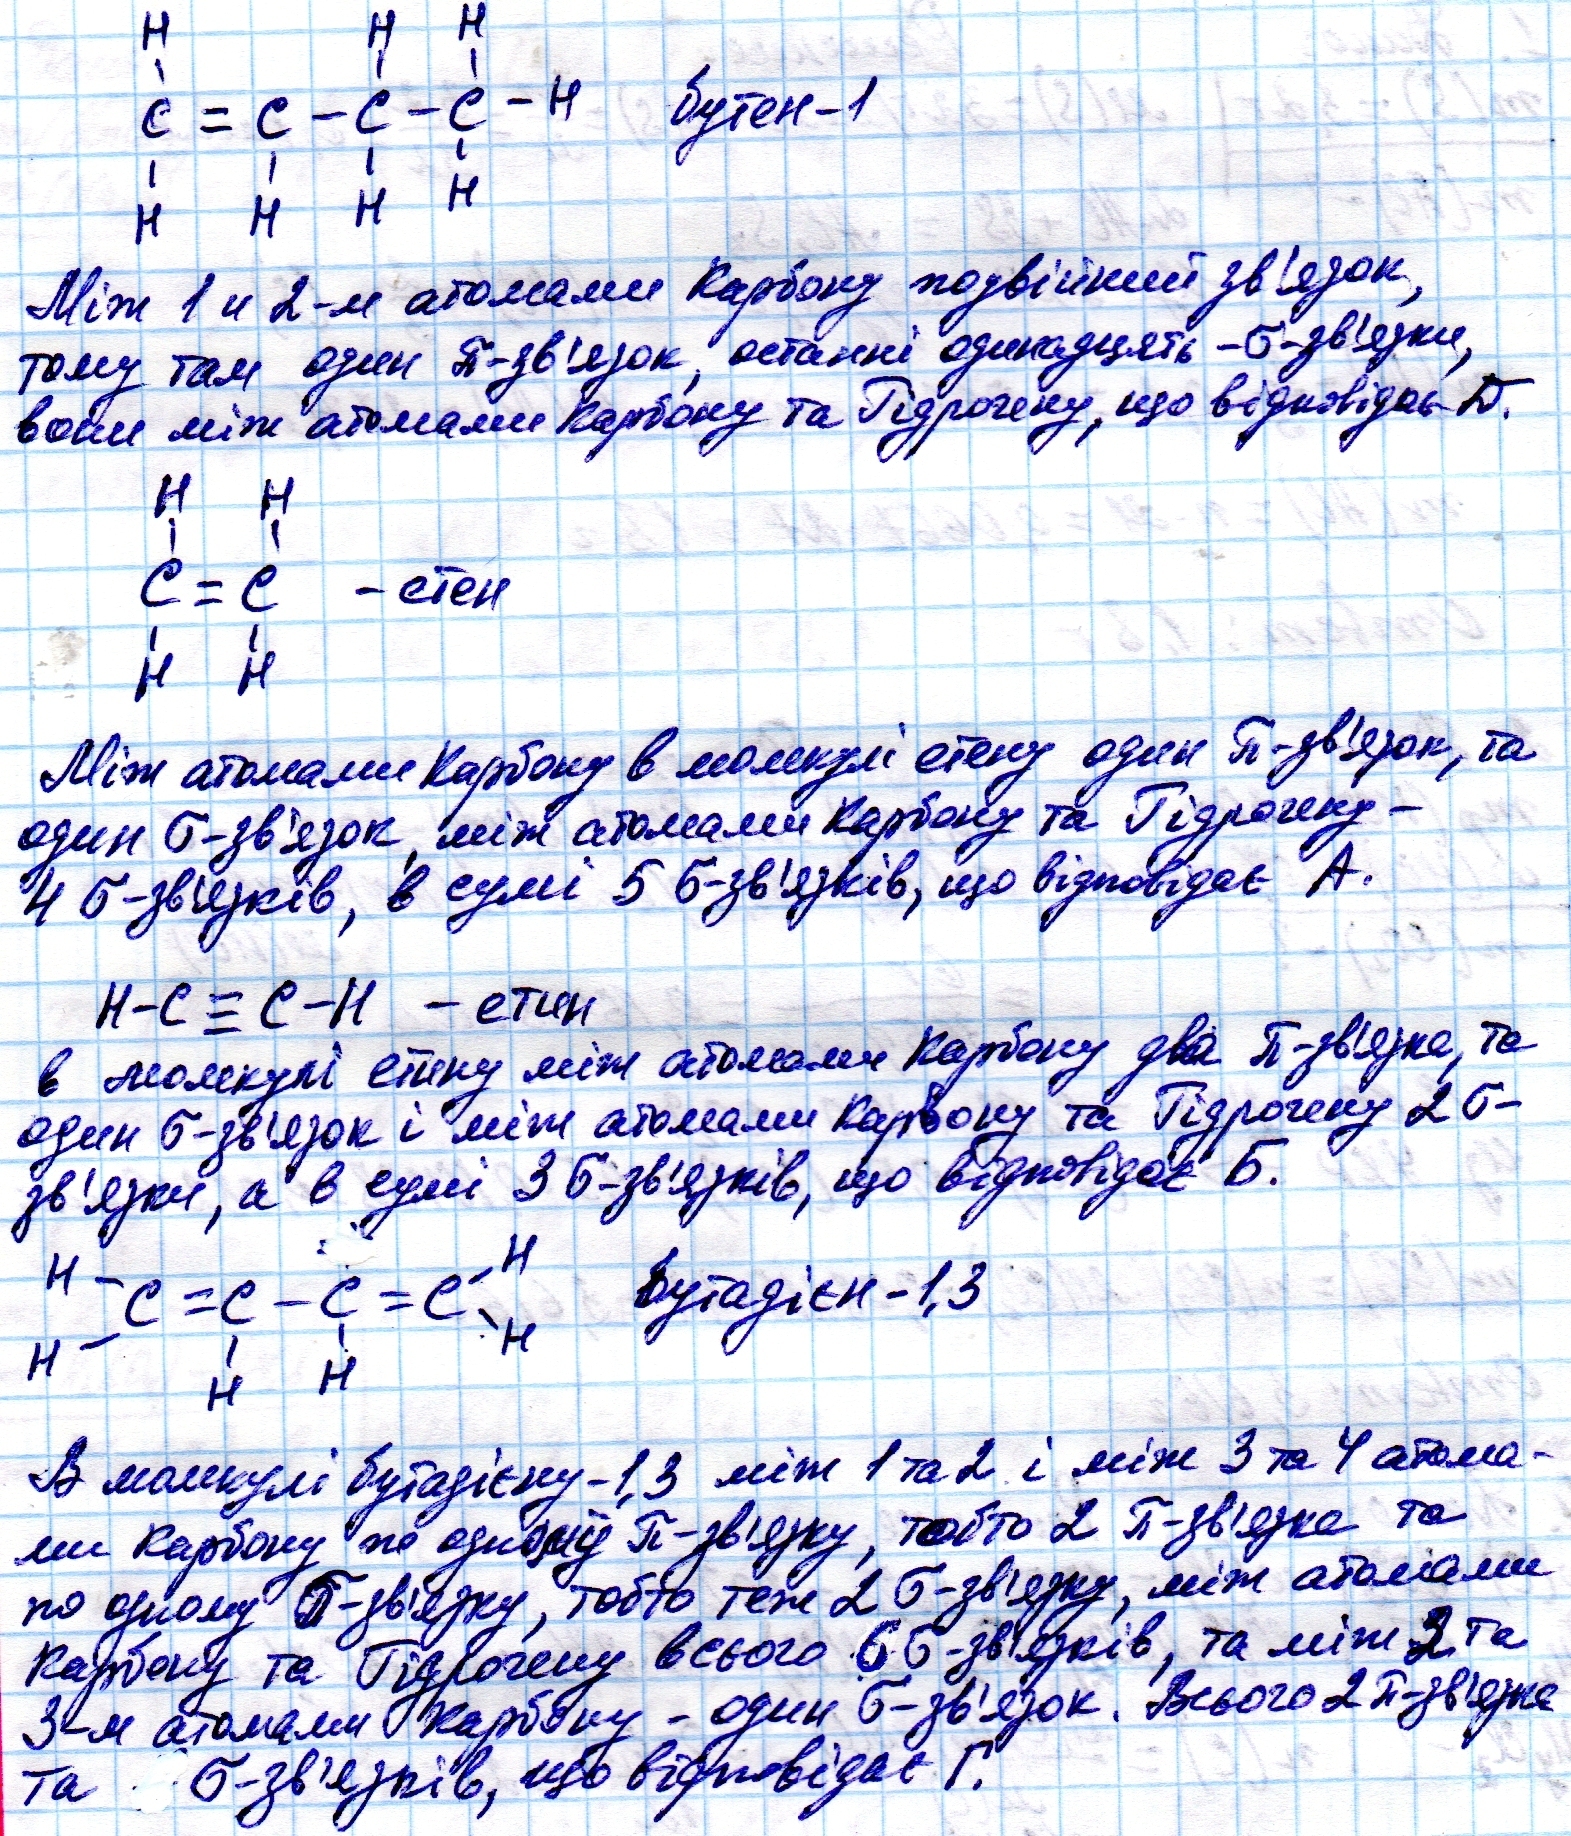 H H H
C = C - C - C - H бутен-1
H H H H
Між 1 и 2-м атомами Карбону подвійний зв'язок,
тому там один π-зв'язок, останні одинадцять - σ-зв'язки,
вони між атомами Карбону та Гідрогену, що відповідає Д.
H H
C = C - етен
H H
Між атомами Карбону в молекулі етену один π-зв'язок, та
один σ-зв'язок, між атомами Карбону та Гідрогену -
4 σ-зв'язків, в сумі 5 σ-зв'язків, що відповідає А.
H-C≡C-H - етин
в молекулі етину між атомами Карбону два π-зв'язка, та
один σ-зв'язок і між атомами Карбону та Гідрогену 2 σ-
зв'язки, а в сумі 3 σ-зв'язків, що відповідає Б.
H H
C = C - C = C бутадієн-1,3
H H H H
В молекулі бутадієну-1,3 між 1 та 2 і між 3 та 4 атома-
ми Карбону по одному π-зв'язку, тобто 2 π-зв'язка та
по одному σ-зв'язку, тобто теж 2 σ-зв'язку, між атомами
Карбону та Гідрогену всього 6 σ-зв'язків, та між 2 та
3-м атомами Карбону - один σ-зв'язок. Всього 2 π-зв'язка
та σ-зв'язків, що відповідає Г.